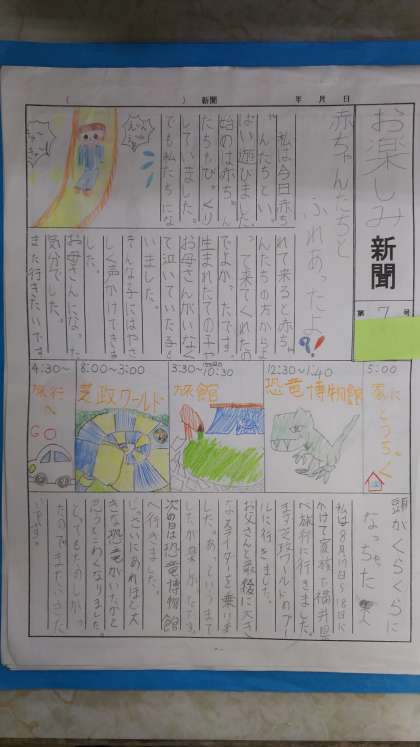 ( )新聞 年 月 日
お楽しみ新聞
第 7 号
赤ちゃんたちと
ふれあったよ!
私は今日赤ち
ゃんたちといっ
ぱい遊びました。
始めは赤ちゃん
たちもびっくり
していました。
ても私たちにな
れて来ると赤ち
んたちの方からよ
って来てくれたの
でよかったです。
生まれたての子や
お母さんがいなく
て泣いていた子も
いました。
そんな子にはやさ
しく声かけできま
した。
お母さんになった
気分でした。
また行きたいです
5:00
家に
とうちゃく
12:30~1:40
恐竜博物館
3:30~
10:30
旅館
8:00~3:00
芝政ワールド
4:30~
旅行
へ
GO
頭がくらくらに
なっちゃた
私は8月17日~18日に
かけて家族で福井県
へ旅行に行きました。
芝政ワールドのプー
ルに行きました。
お父さんと最後に大き
なスライダーを乗りま
した。
次の日は恐竜博物館
へ行きました。
きな恐竜がいたかと
思うとこわくなりました。
とてもたのしかっ
たのでまたいきたい
です。